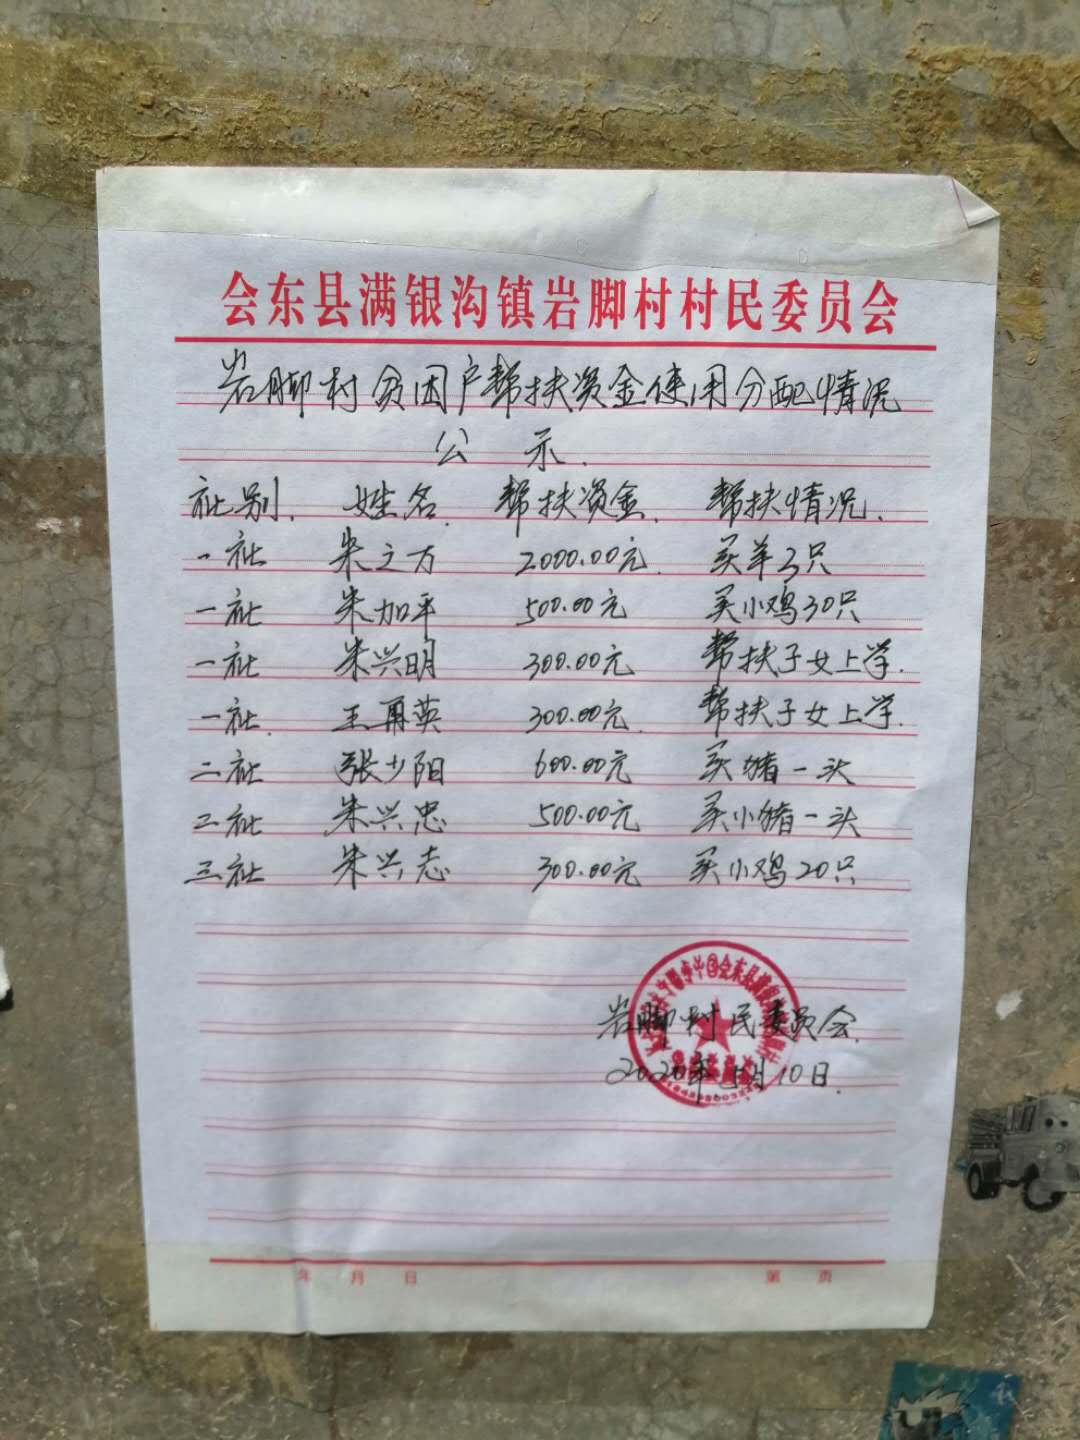 会东县满银沟镇岩脚村村民委员会
岩脚村贫困户帮扶资金使用分配情况
公示.
社别. 姓名. 帮扶资金. 帮扶情况.
一社 朱之万 2000.00元. 买羊3只
一社 朱加平 500.00元 买小鸡30只
一社 朱兴明 300.00元 帮扶子女上学.
一社. 王再英 300.00元. 帮扶子女上学.
二社 张少阳 600.00元 买猪一头
二社 朱兴忠 500.00元 买小猪一头
三社 朱兴志 300.00元 买小鸡20只
岩脚村民委员会.
2020年5月10日.
年 月 日 第 页